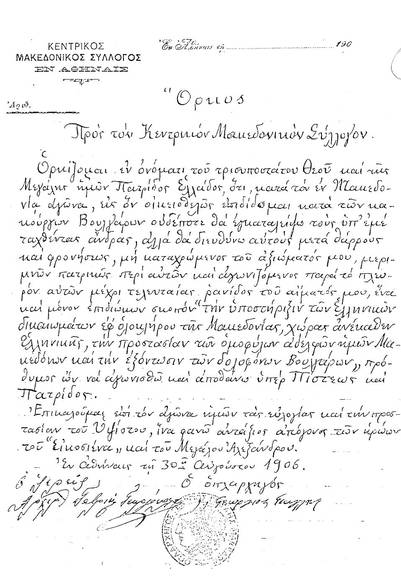 ΚΕΝΤΡΙΚΟΣ
ΜΑΚΕΔΟΝΙΚΟΣ ΣΥΛΛΟΓΟΣ
ΕΝ ΑΘΗΝΑΙΣ
Ἐν Ἀθήναις τῇ 190
Ἀριθ.
Ὅρκος
Πρὸς τὸν Κεντρικὸν Μακεδονικὸν Σύλλογον.
Ὁρκίζομαι ἐν ὀνόματι τοῦ τρισυποστάτου Θεοῦ καὶ τῆς
Μεγάλης ἡμῶν Πατρίδος Ἑλλάδος, ὅτι, κατὰ τὸν ἐν Μακεδο-
νίᾳ ἀγῶνα, εἰς ὃν οἰκειοθελῶς ἐπιδίδωμαι κατὰ τῶν κα-
κούργων Βουλγάρων οὐδέποτε θὰ ἐγκαταλείψω τοὺς ὑπ' ἐμὲ
ταχθέντας ἄνδρας, ἀλλὰ θὰ διευθύνω αὐτοὺς μετὰ θάρρους
καὶ φρονήσεως, μὴ καταχώμενος τοῦ ἀξιώματός μου, μερι-
μνῶν πατρικῶς περὶ αὐτῶν καὶ ἀγωνιζόμενος παρὰ τὸ πλευ-
ρὸν αὐτῶν μέχρι τελευταίας ῥανίδος τοῦ αἵματός μου, ἕνα
καὶ μόνον ἐπιδιώκων σκοπὸν "τὴν ὑποστήριξιν τῶν ἑλληνικῶν
δικαιωμάτων ἐφ' ὁλοκλήρου τῆς Μακεδονίας, χώρας ἀνέκαθεν
ἑλληνικῆς, τὴν προστασίαν τῶν ὁμοφύλων ἀδελφῶν ἡμῶν Μα-
κεδόνων καὶ τὴν ἐξόντωσιν τῶν δολοφόνων Βουλγάρων", πρό-
θυμος ὢν νὰ ἀγωνισθῶ καὶ ἀποθάνω ὑπὲρ Πίστεως καὶ
Πατρίδος.
Ἐπικαλοῦμαι ἐπὶ τὸν ἀγῶνα ἡμῶν τὰς εὐλογίας καὶ τὴν προσ-
τασίαν τοῦ Ὑψίστου, ἵνα φανῶ ἀντάξιος ἀπόγονος τῶν ἡρώων
τοῦ "Εἰκοσιένα" καὶ τοῦ Μεγάλου Ἀλεξάνδρου.
Ἐν Ἀθήναις τῇ 30ῇ Αὐγούστου 1906.
Ὁ Ἱερεὺς Ὁ ὁπλαρχηγὸς